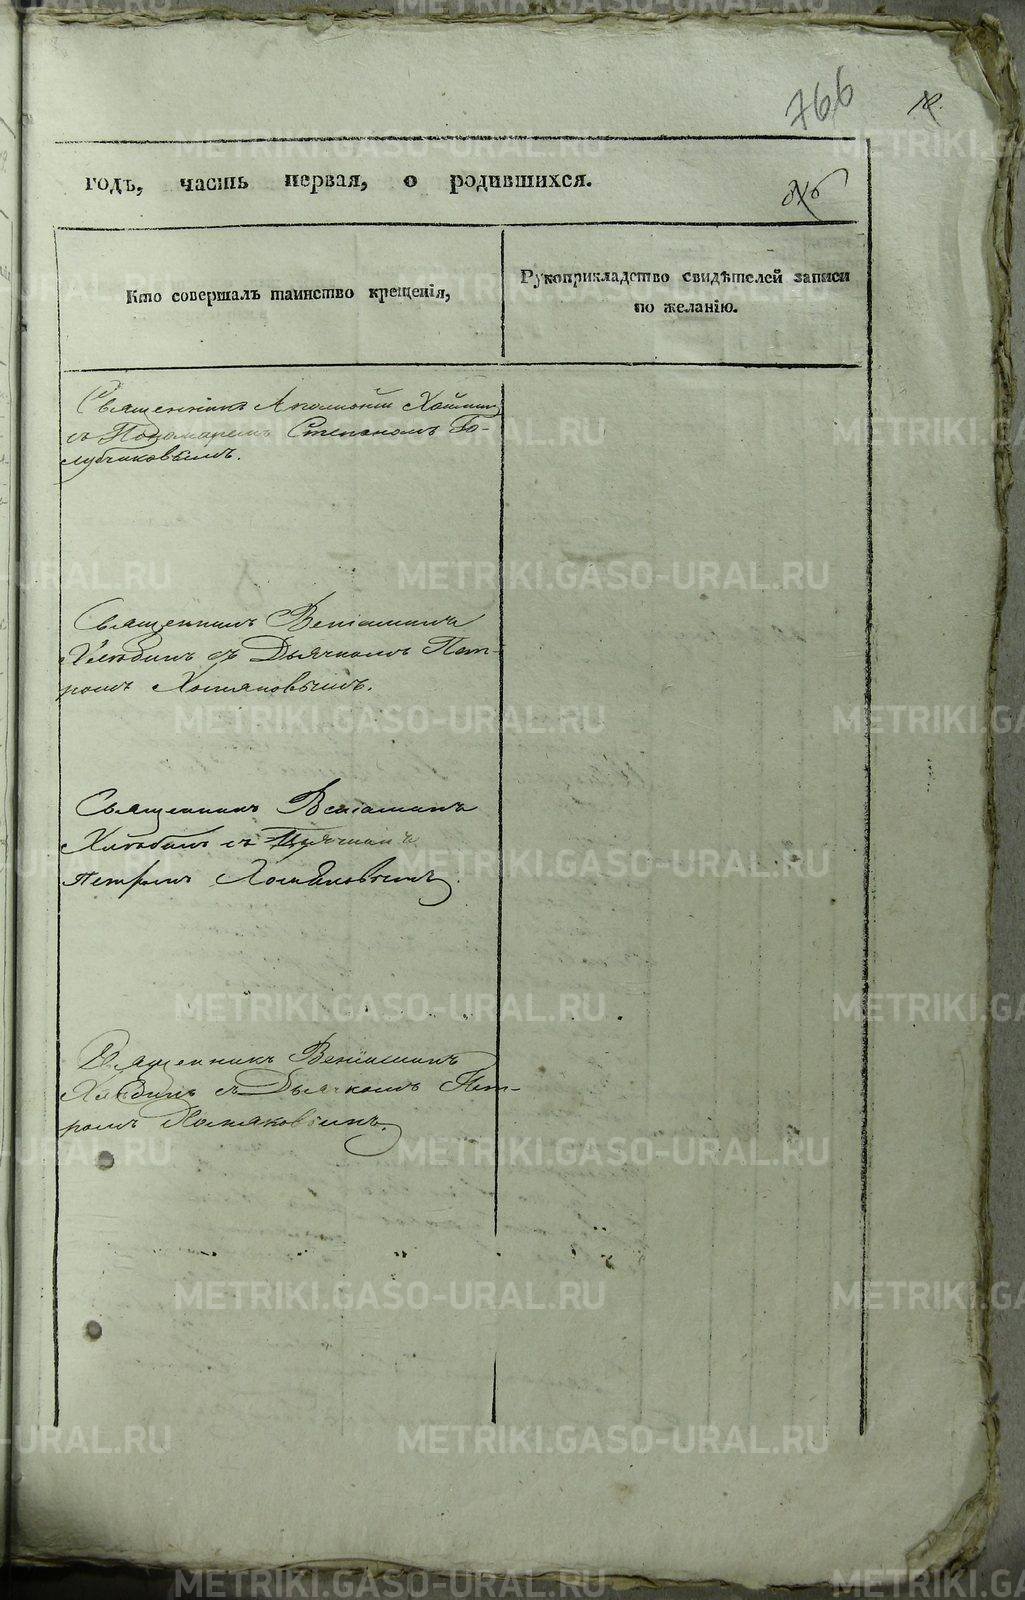 766
годъ, часть первая, о родившихся.
Кто совершалъ таинство крещенія,
Рукоприкладство свидѣтелей записи
по желанію.
Священникъ
съ Пономаремъ Степаномъ Го-
лубчиковымъ.
Священникъ Веніаминъ
Хлѣбинъ съ Дьячкомъ Пет-
ромъ Хомяковымъ.
Священникъ Веніаминъ
Хлѣбинъ съ
Петромъ Хомяковымъ.
Священникъ Веніаминъ
Хлѣбинъ съ Дьячкомъ Пет-
ромъ Хомяковымъ.
METRIKI.GASO-URAL.RU